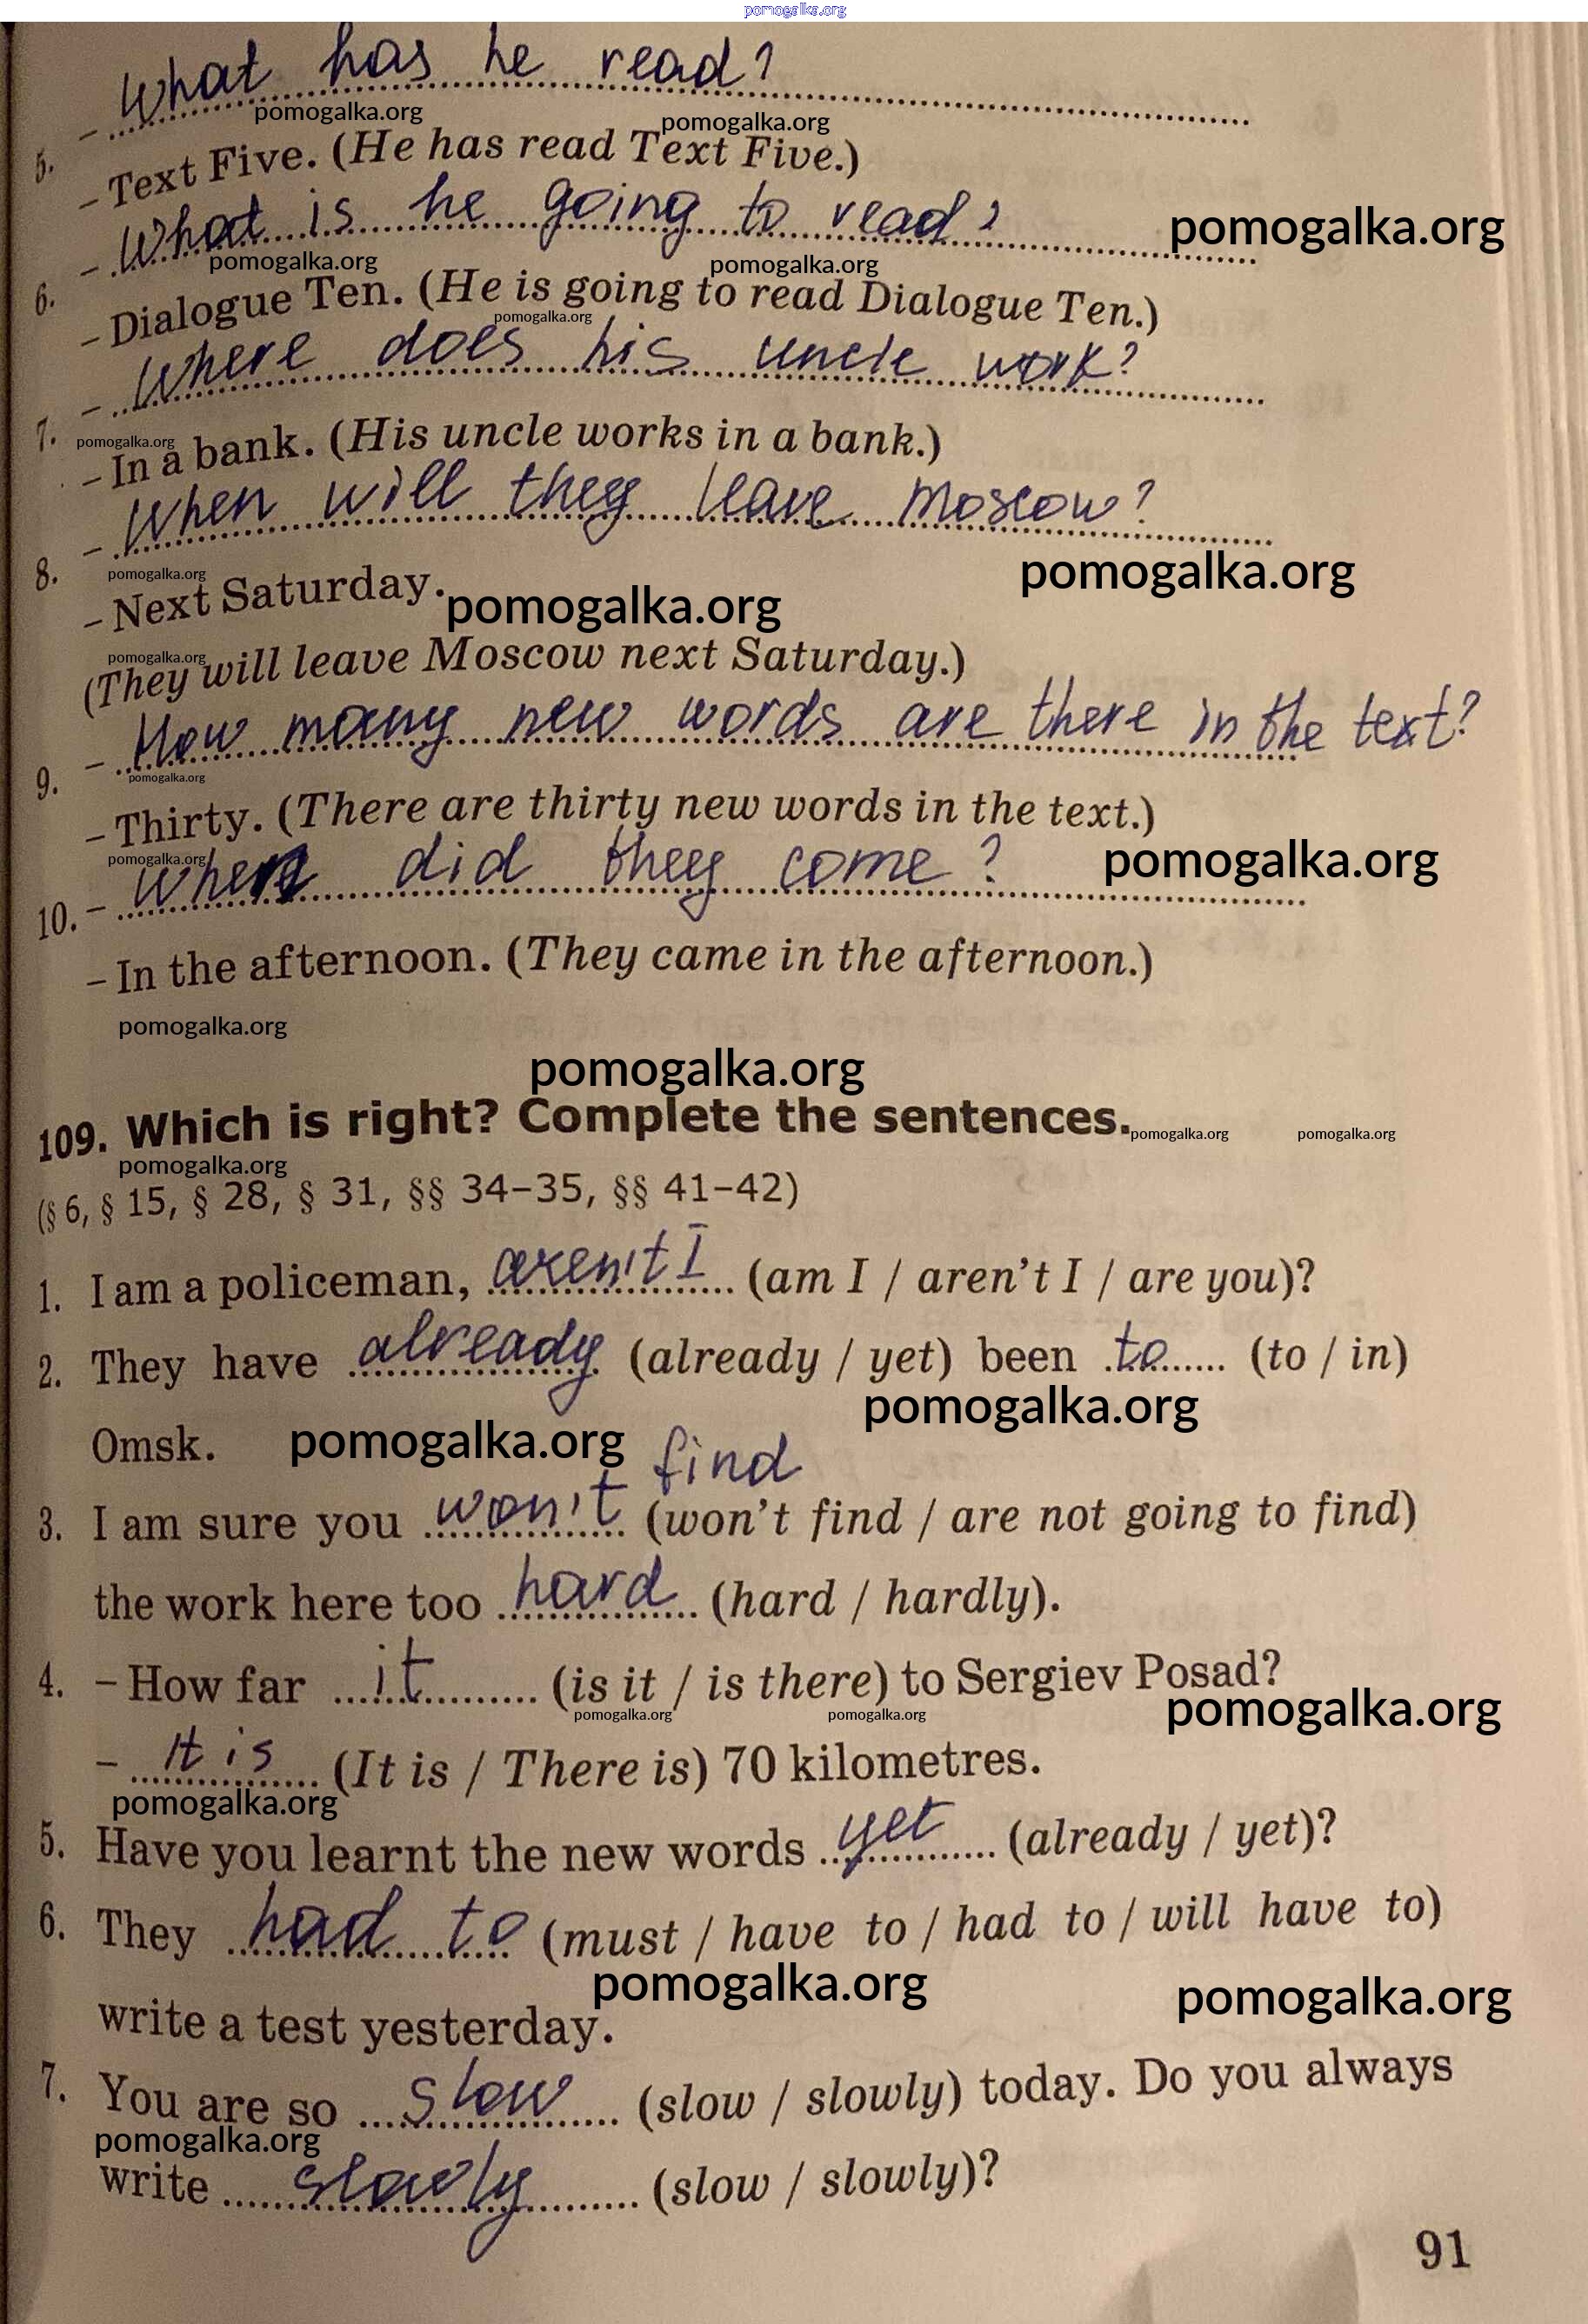 pomogalka.org
What has he read?
pomogalka.org pomogalka.org
5. – Text Five. (He has read Text Five.)
– What is he going to read?
pomogalka.org
pomogalka.org pomogalka.org
6. – Dialogue Ten. (He is going to read Dialogue Ten.)
pomogalka.org
– Where does his uncle work?
7. pomogalka.org
– In a bank. (His uncle works in a bank.)
– When will they leave Moscow?
8. pomogalka.org pomogalka.org
– Next Saturday. pomogalka.org
pomogalka.org
(They will leave Moscow next Saturday.)
9. – How many new words are there in the text?
pomogalka.org
– Thirty. (There are thirty new words in the text.)
pomogalka.org pomogalka.org
10. – When did they come?
– In the afternoon. (They came in the afternoon.)
pomogalka.org
pomogalka.org
109. Which is right? Complete the sentences.
pomogalka.org pomogalka.org
pomogalka.org
(§ 6, § 15, § 28, § 31, §§ 34–35, §§ 41–42)
1. I am a policeman, aren't I (am I / aren't I / are you)?
2. They have already (already / yet) been to (to / in)
pomogalka.org
Omsk. pomogalka.org find
3. I am sure you won't (won't find / are not going to find)
the work here too hard (hard / hardly).
4. – How far it (is it / is there) to Sergiev Posad?
pomogalka.org pomogalka.org pomogalka.org
– It is (It is / There is) 70 kilometres.
pomogalka.org
5. Have you learnt the new words yet (already / yet)?
6. They had to (must / have to / had to / will have to)
pomogalka.org pomogalka.org
write a test yesterday.
7. You are so slow (slow / slowly) today. Do you always
pomogalka.org
write slowly (slow / slowly)?
91